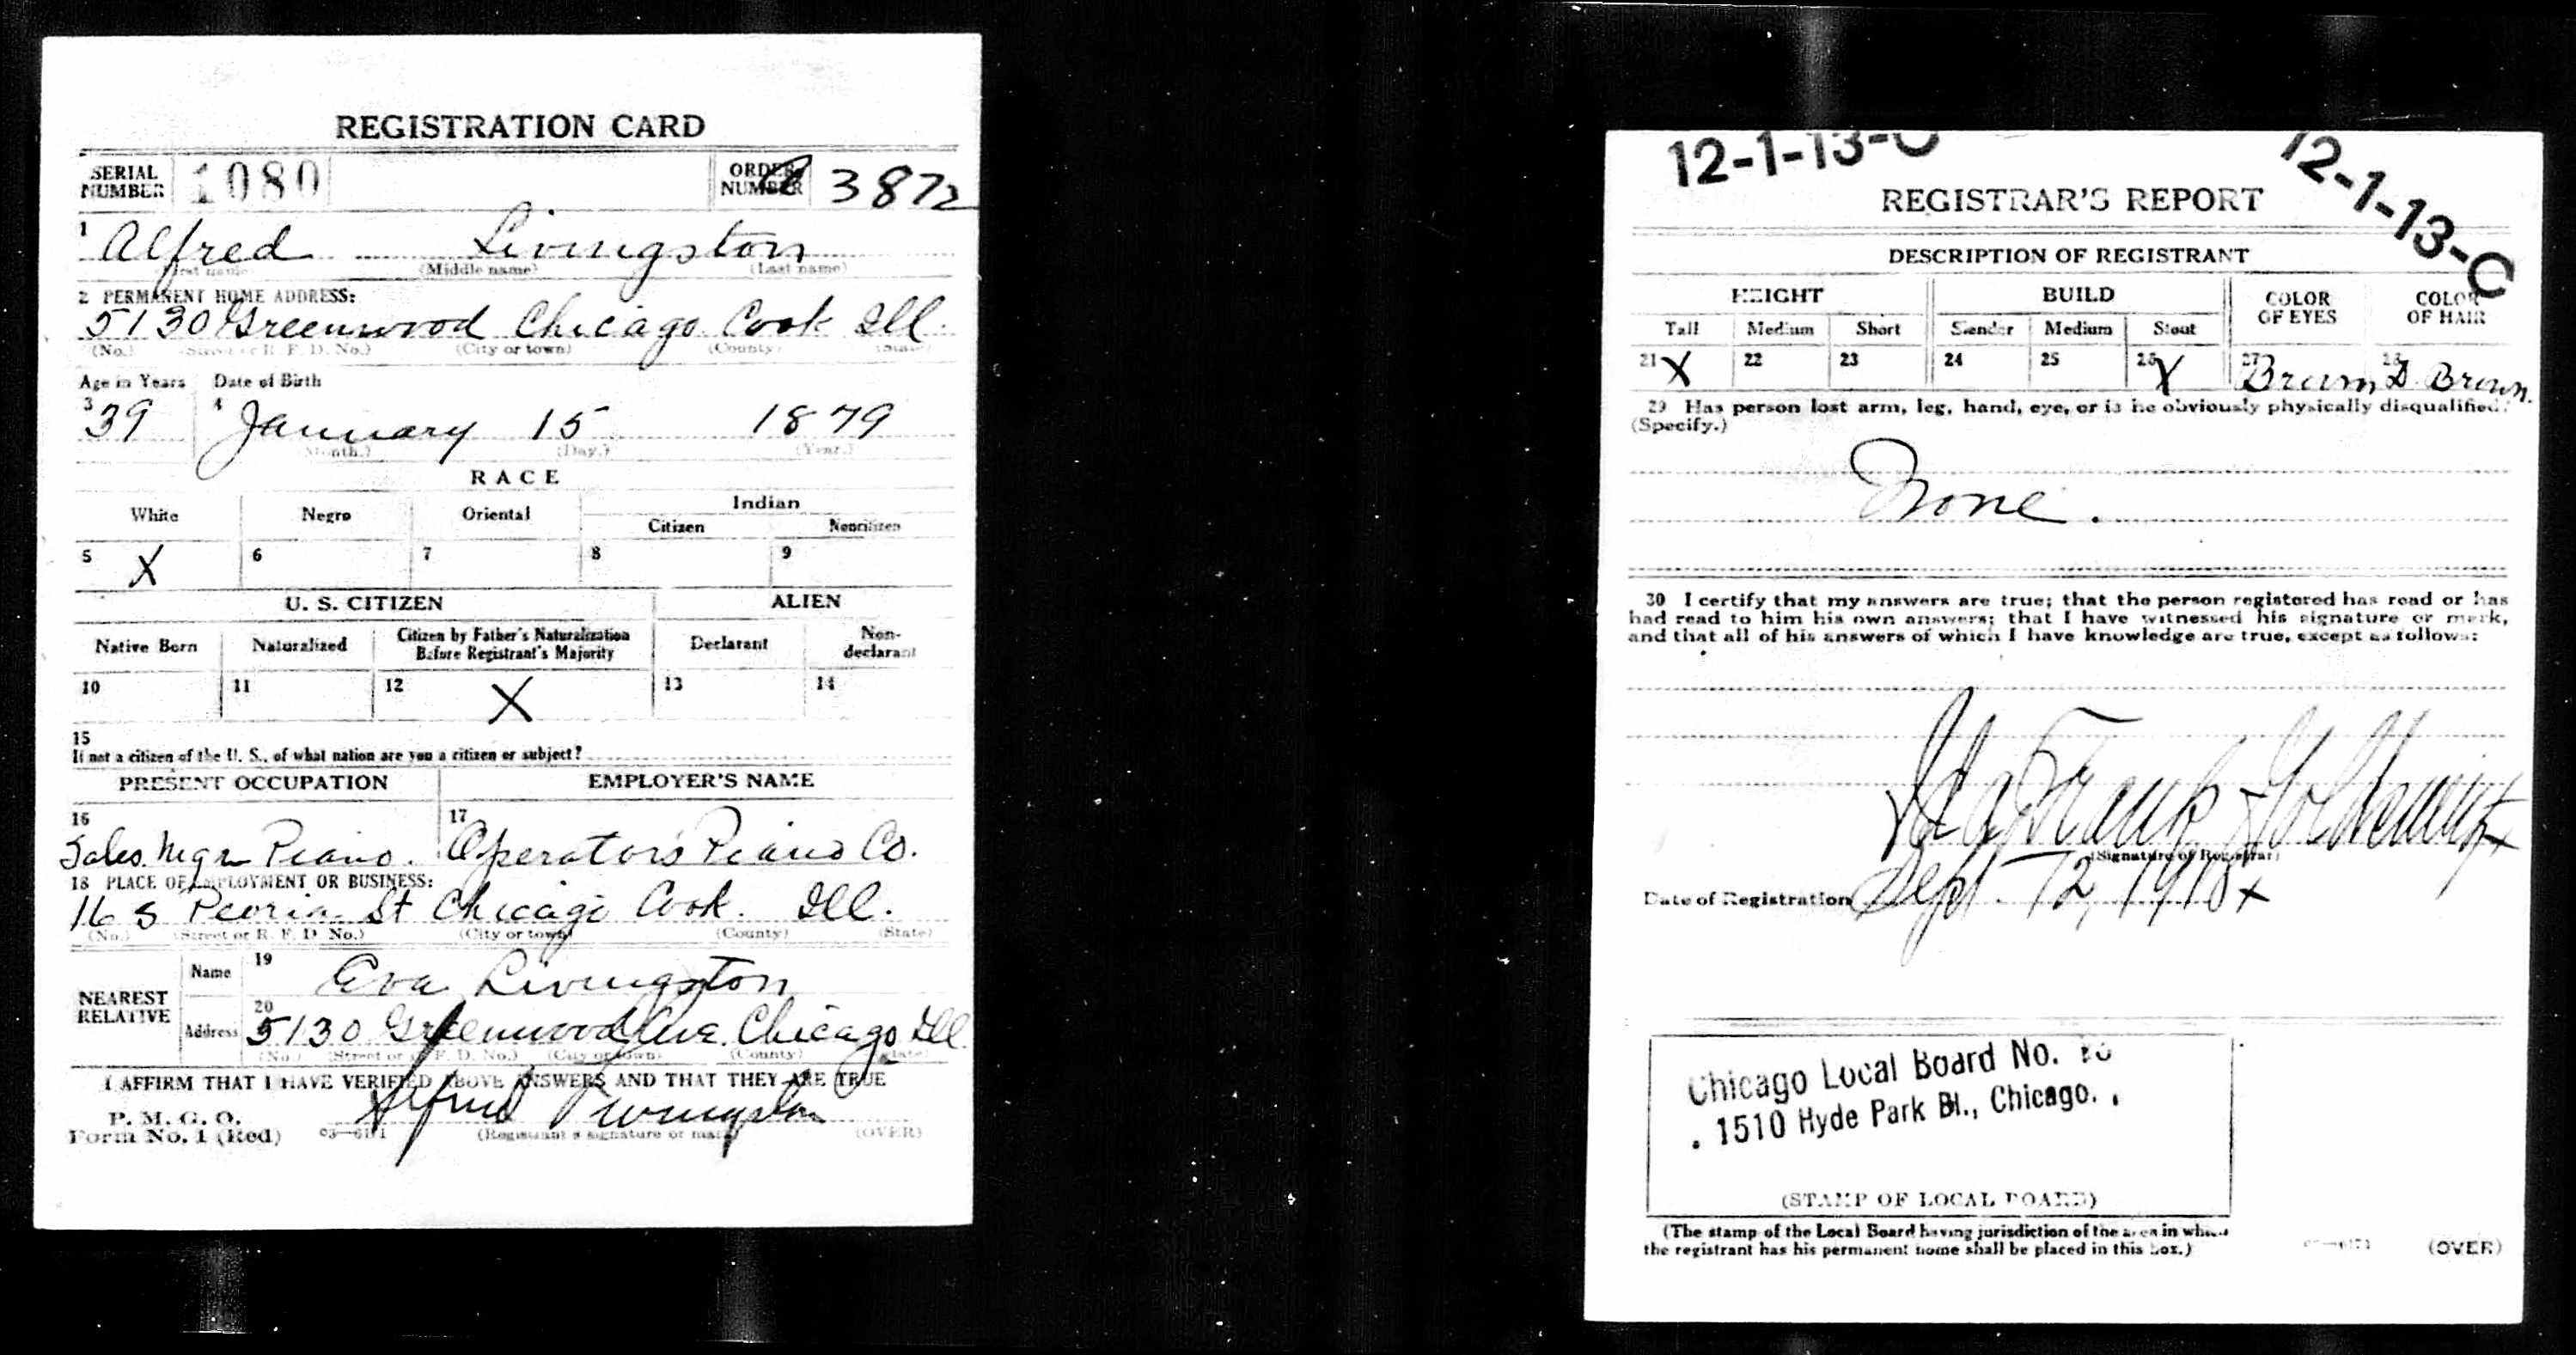 REGISTRATION CARD
SERIAL NUMBER 1080 ORDER NUMBER 3872
1 Alfred Livingston
(First name) (Middle name) (Last name)
2 PERMANENT HOME ADDRESS:
5130 Greenwood Chicago Cook Ill.
(No.) (Street or R. F. D. No.) (City or town) (County) (State)
Age in Years Date of Birth
3 39 4 January 15 1879
(Month.) (Day.) (Year.)
RACE
White Negro Oriental Indian
Citizen Noncitizen
5 X 6 7 8 9
U. S. CITIZEN ALIEN
Native Born Naturalized Citizen by Father's Naturalization Before Registrant's Majority Declarant Non-declarant
10 11 12 X 13 14
15
If not a citizen of the U. S., of what nation are you a citizen or subject?
PRESENT OCCUPATION EMPLOYER'S NAME
16 Sales. Mgr Piano. 17 Operators Piano Co.
18 PLACE OF EMPLOYMENT OR BUSINESS:
16 S Peoria St Chicago Cook. Ill.
(No.) (Street or R. F. D. No.) (City or town) (County) (State)
NEAREST RELATIVE
Name 19 Eva Livingston
Address 20 5130 Greenwood Ave. Chicago Ill
(No.) (Street or R. F. D. No.) (City or town) (County) (State)
I AFFIRM THAT I HAVE VERIFIED ABOVE ANSWERS AND THAT THEY ARE TRUE
P. M. G. O.
Form No. 1 (Red) 03—6171 Alfred Livingston
(Registrant's signature or mark) (OVER)
12-1-13-C 12-1-13-C
REGISTRAR'S REPORT
DESCRIPTION OF REGISTRANT
HEIGHT BUILD COLOR OF EYES COLOR OF HAIR
Tall Medium Short Slender Medium Stout
21 X 22 23 24 25 26 X 27 Brown 28 D. Brown.
29 Has person lost arm, leg, hand, eye, or is he obviously physically disqualified?
(Specify.)
None.
30 I certify that my answers are true; that the person registered has read or has
had read to him his own answers; that I have witnessed his signature or mark,
and that all of his answers of which I have knowledge are true, except as follows:
Ida Frank
(Signature of Registrar)
Date of Registration Sept. 12, 1918
Chicago Local Board No.
1510 Hyde Park Bl., Chicago.
(STAMP OF LOCAL BOARD)
(The stamp of the Local Board having jurisdiction of the area in which
the registrant has his permanent home shall be placed in this box.)
03—6171 (OVER)